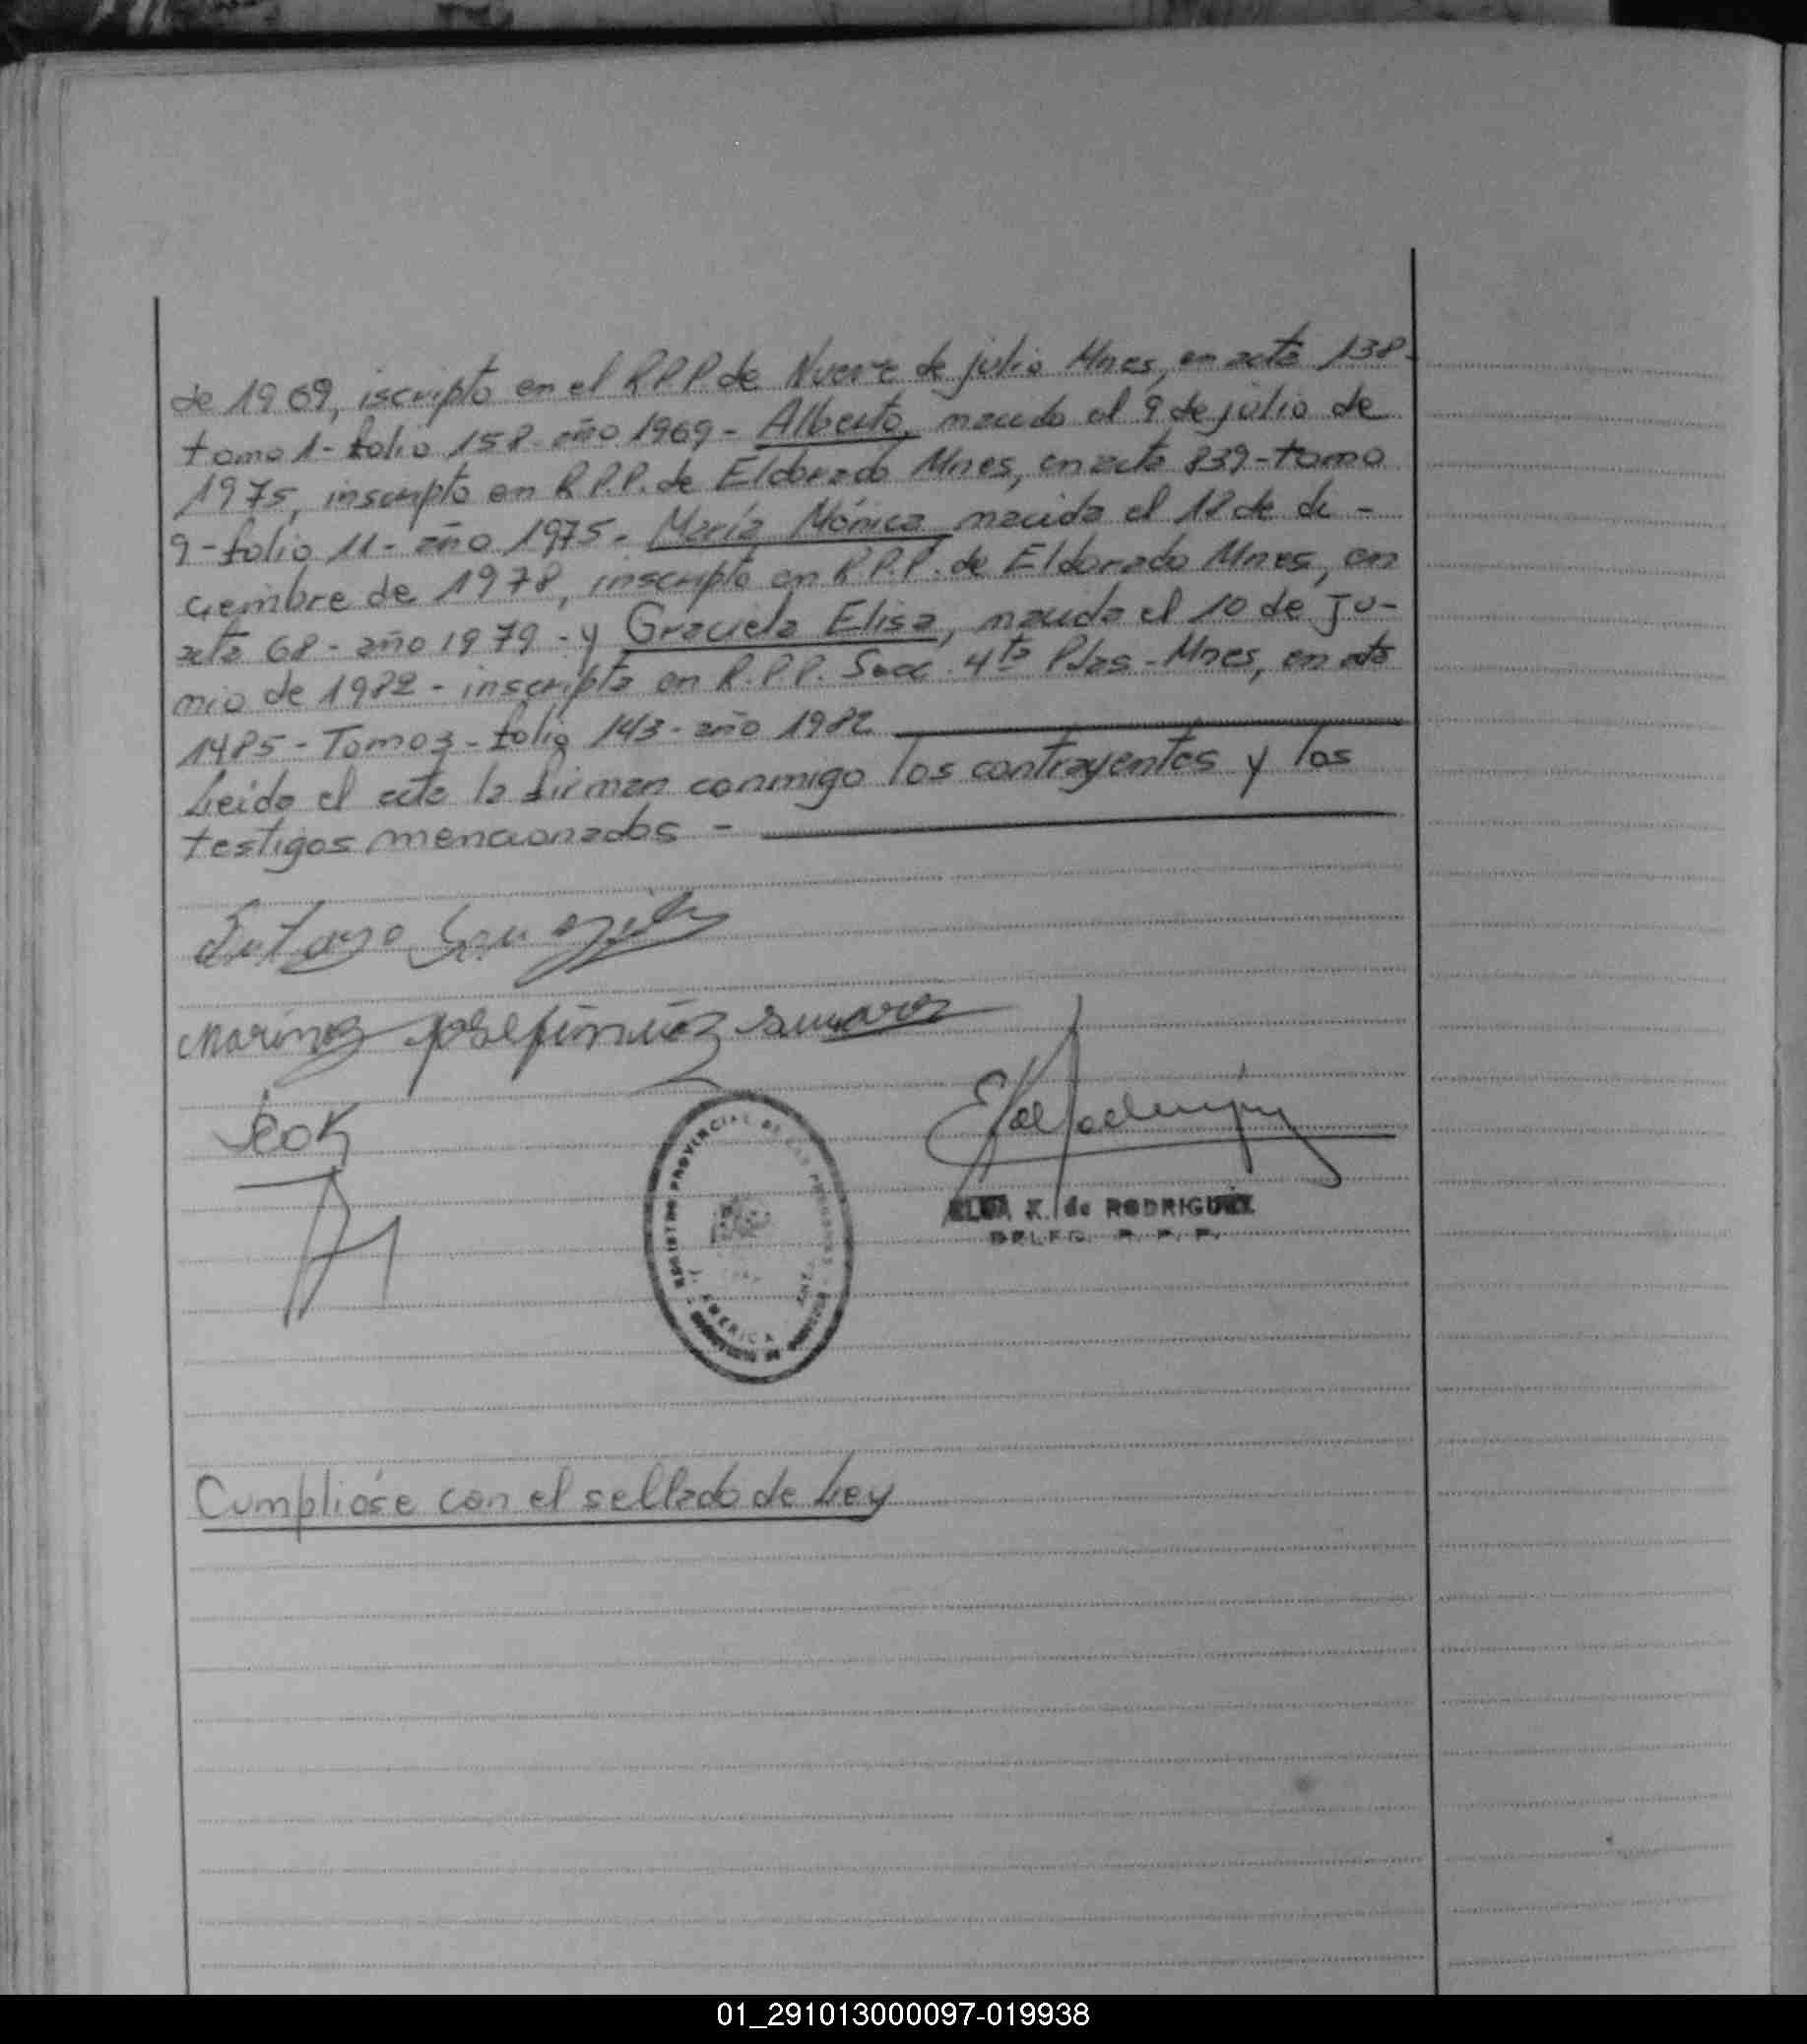 de 1969, iscripto en el R.P.P. de Nueve de julio Mnes, en acta 138-
tomo 1- folio 158- año 1969- Alberto, nacido el 9 de julio de
1975, inscripto en R.P.P. de Eldorado Mnes, en acta 839- tomo
9- folio 11- año 1975- María Mónica nacida el 12 de di -
ciembre de 1978, inscripta en R.P.P. de Eldorado Mnes, en
acta 68- año 1979- y Graciela Elisa, nacida el 10 de ju-
nio de 1982- inscripta en R.P.P. Secc. 4ta Pdas- Mnes, en acta
1485- Tomo 3- folio 143- año 1982
Leida el acta la firman conmigo los contrayentes y los
testigos mencionados -
REGISTRO PROVINCIAL DE LAS PERSONAS
AMERICA
ELBA K. de RODRIGUEZ
DELEG. R. P. P.
Cumplióse con el sellado de Ley
01_291013000097-019938